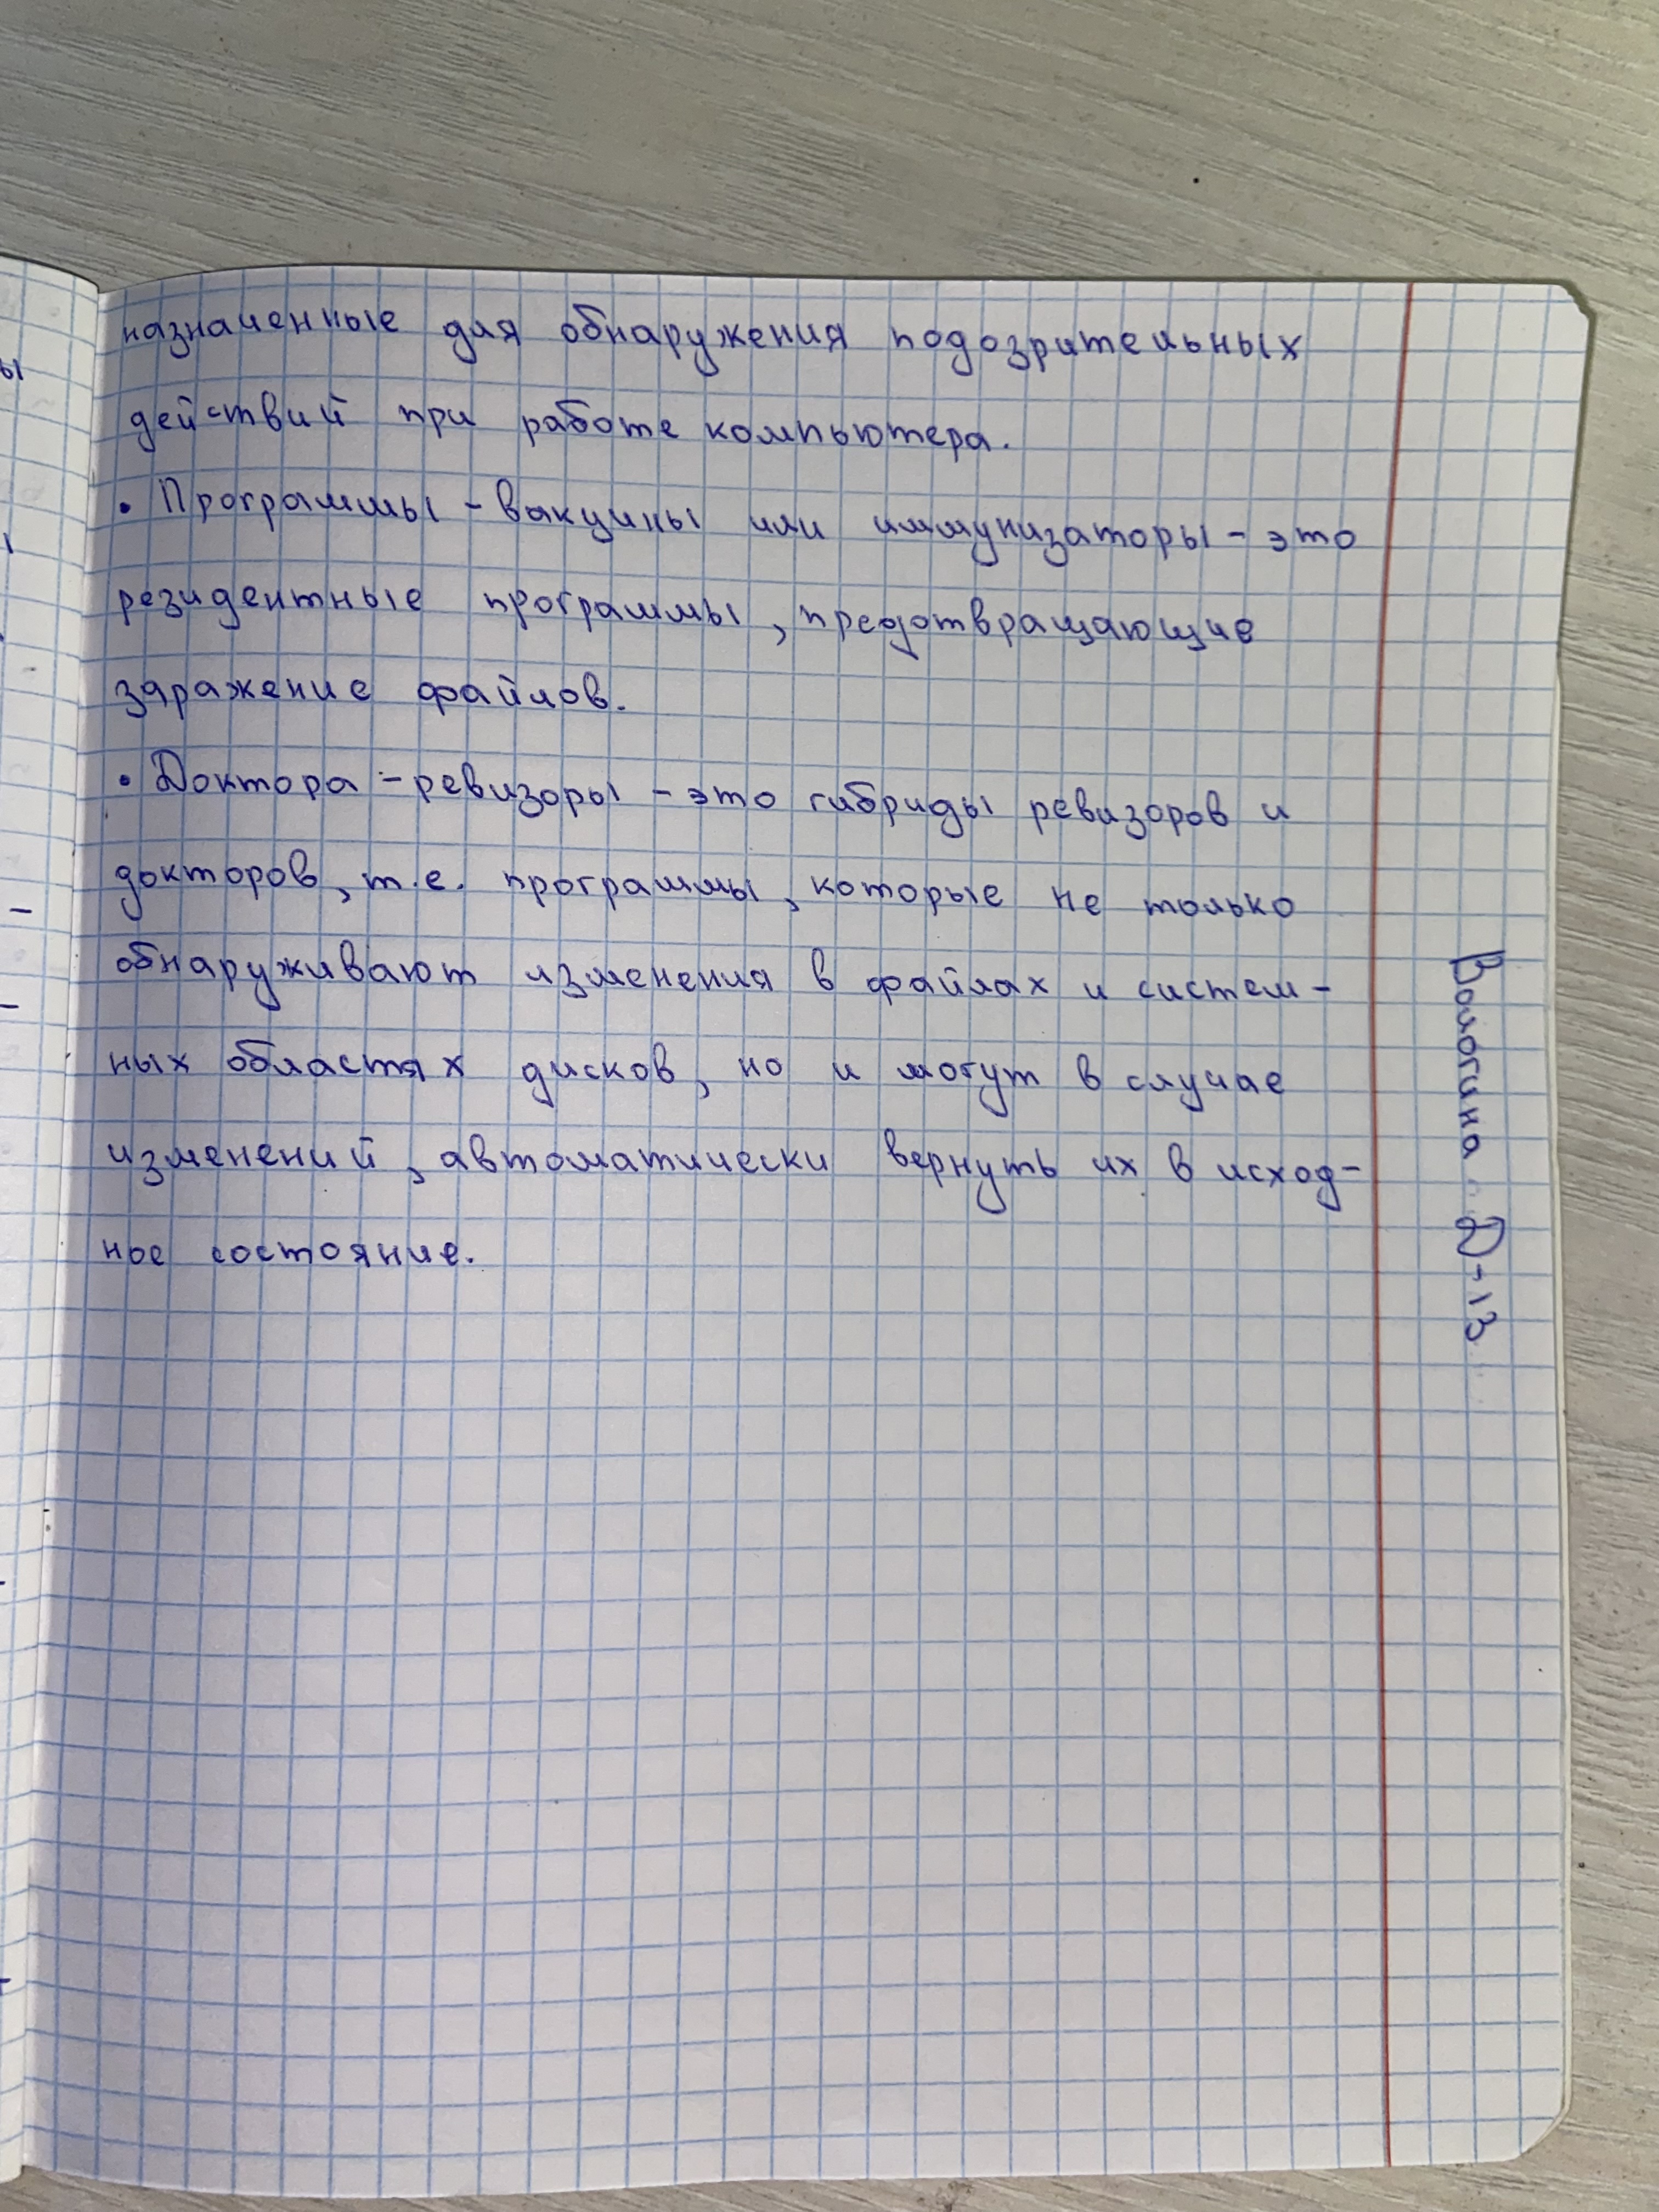 назначенные для обнаружения подозрительных
действий при работе компьютера.
• Программы - вакцины или иммунизаторы - это
резидентные программы, предотвращающие
заражение файлов.
• Доктора - ревизоры - это гибриды ревизоров и
докторов, т.е. программы, которые не только
обнаруживают изменения в файлах и систем-
ных областях дисков, но и могут в случае
изменений, автоматически вернуть их в исход-
ное состояние.
Вологина Д-13